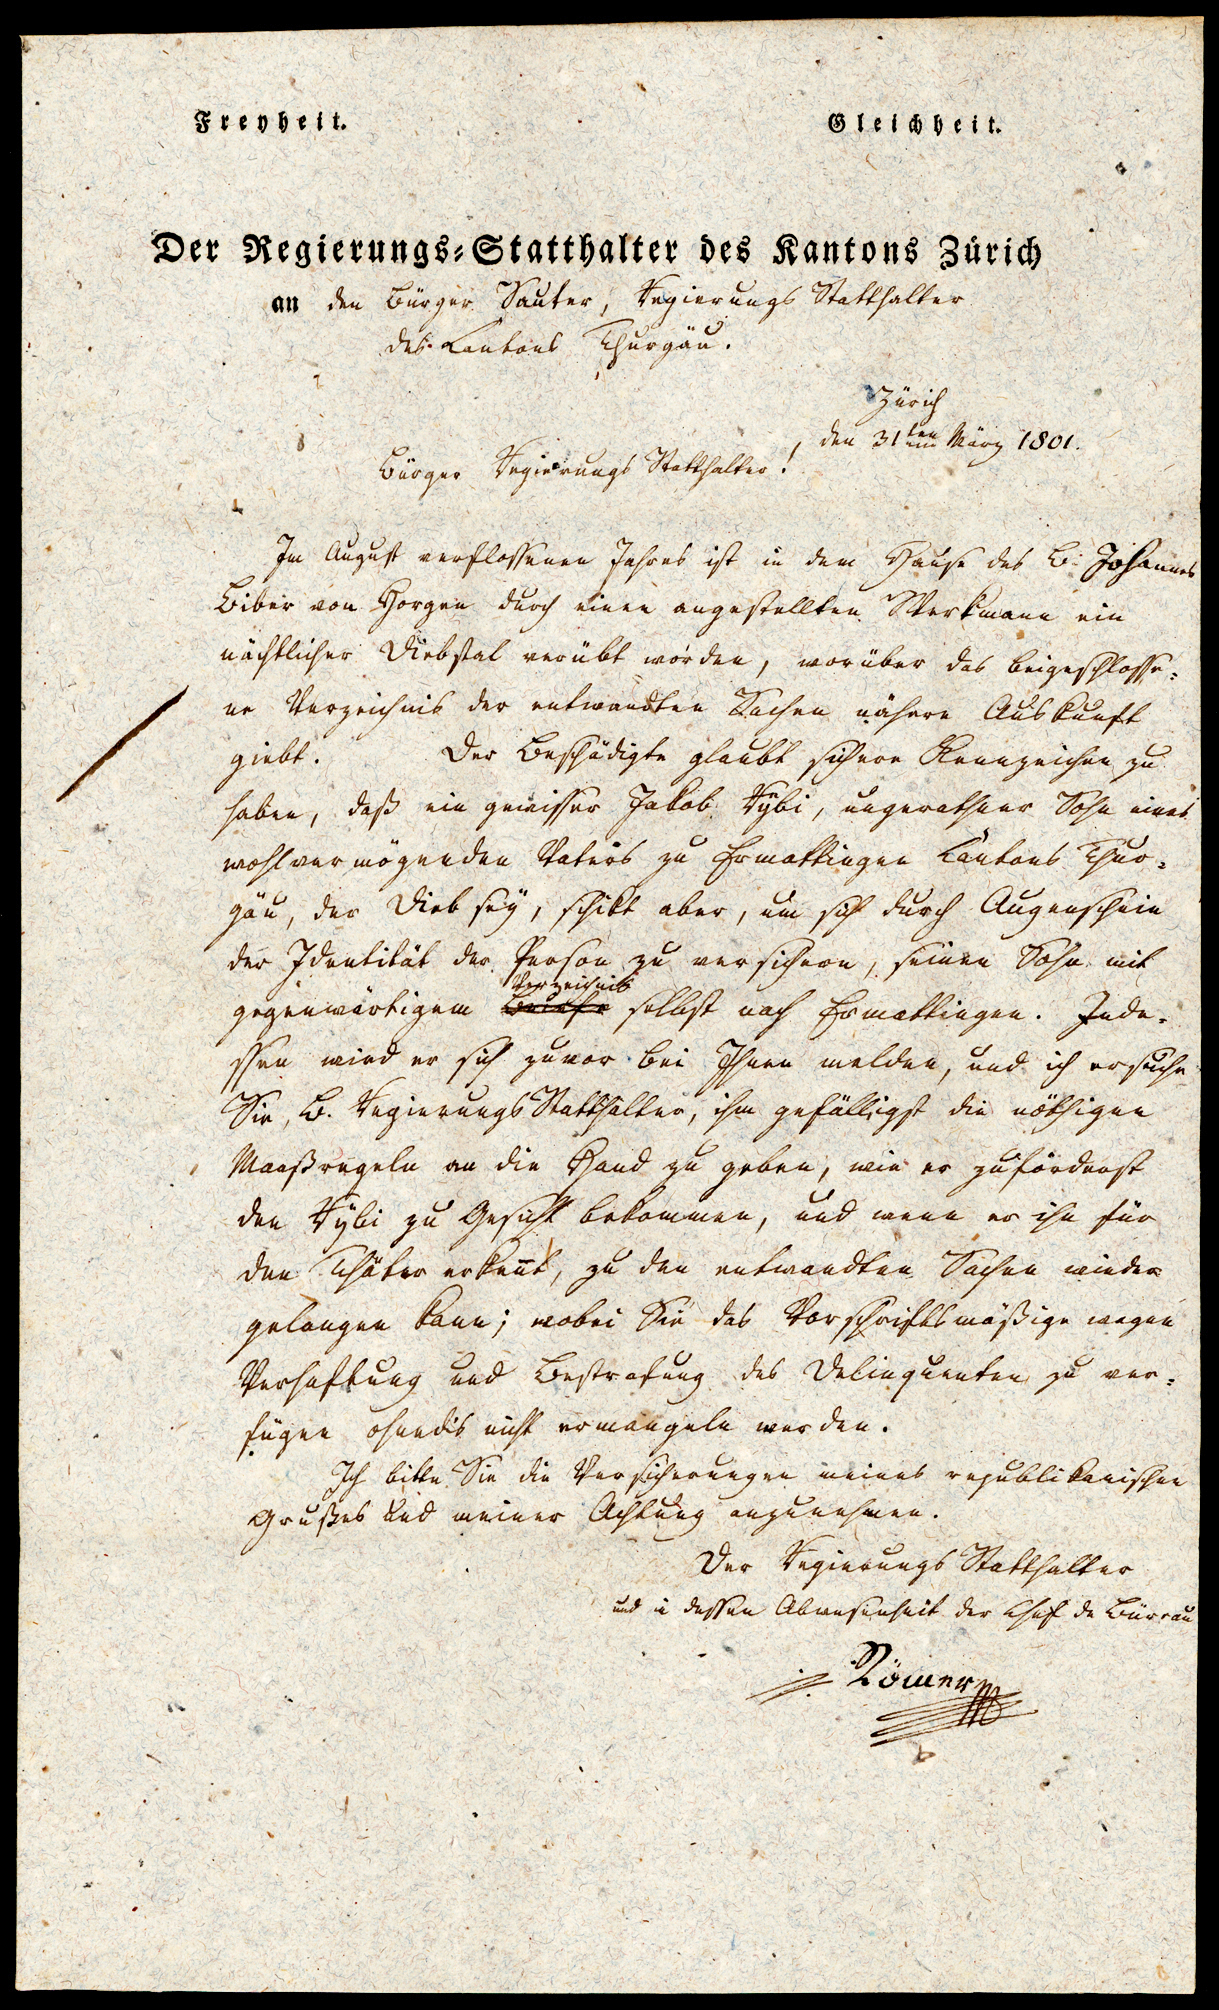 Freyheit. Gleichheit.
Der Regierungs-Statthalter des Kantons Zürich
an den Bürger Sauter, Regierungs Statthalter
des Cantons Thurgäu.
Zürich
, den 31ten März 1801.
Bürger Regierungs Statthalter!
Im August verflossenen Jahres ist in dem Hause des B. Johannes
Biber von Horgen durch einen angestellten Werkmann ein
nächtlicher Diebstal verübt worden, worüber das beigeschlosse-
ne Verzeichnis der entwandten Sachen nähere Auskunft
giebt. Der Beschädigte glaubt sichere Kennzeichen zu
haben, daß ein gewisser Jakob Rÿbi, ungerathner Sohn eines
wohlvermögenden Vaters zu Ermattingen Cantons Thur-
gäu, der Dieb seÿ, schikt aber, um sich durch Augenschein
der Identität der Person zu versichern, seinen Sohn mit
Verzeichnis
gegenwärtigem Briefe selbst nach Ermattingen. Inde-
ssen wird er sich zuvor bei Ihnen melden, und ich ersuche
Sie, B. Regierungs Statthalter, ihm gefälligst die nöthigen
Maaßregeln an die Hand zu geben, wie er zuförderst
den Rÿbi zu Gesicht bekommen, und wenn er ihn für
den Thäter erkennt, zu den entwandten Sachen wieder
gelangen kann; wobei Sie das Vorschriftsmäßige wegen
Verhaftung und Bestrafung des Delinquenten zu ver-
fügen ohnedis nicht ermangeln werden.
Ich bitte Sie die Versicherungen meines republikanischen
Grußes und meiner Achtung anzunehmen.
Der Regierungs Statthalter
und in dessen Abwesenheit der Chef de Büreau
Römer